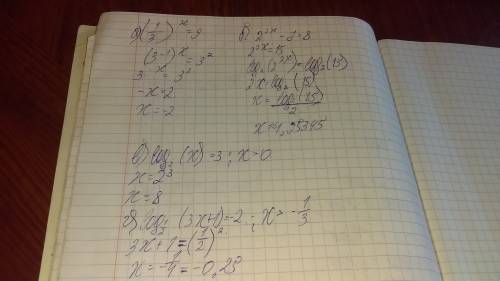 а) (1/3)^x = 9
(3-1)^x = 3^2
3^-x = 3^2
-x = 2
x = -2
б) 2^2x - 7 = 8
2^2x = 15
log2(2^2x) = log2(15)
2x = log2(15)
x = log2(15)/2
в) log2(x) = 3; x > 0
x = 2^3
x = 8
г) log1/2(3x+1) = -2; x > -1/3
3x + 1 = (1/2)^2
x = -1/4 = -0,25